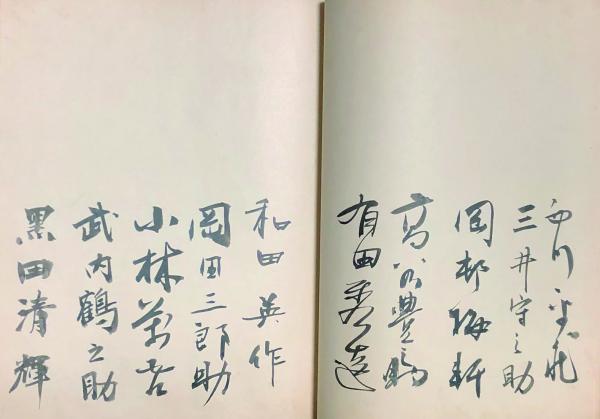 西川
三井守之助
岡邨梅軒
豊
有田秀造
和田英作
岡田三郎助
小林萬吾
武内鶴之助
黒田清輝